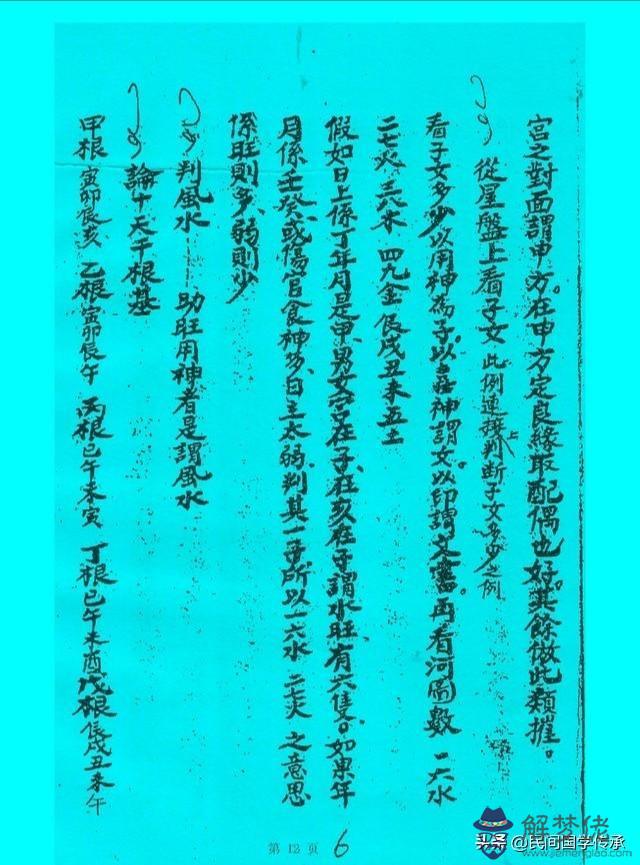 宫之對面謂申方。在申方定良緣取配偶也好。其餘倣此類推。
從星盤上看子女 此例連接上判断子女多少之例
看子女多少以用神為子。以喜神謂女。以印謂文書。再看河圖數 一六水
二七火 三八木 四九金 辰戌丑未五土
假如日上係丁年月是甲、男女宫在子、在亥在子謂水旺、有六隻。如果年
月係壬癸、或傷官食神多、日主太弱、判其一子、所以一六水 二七火 之意思
係旺則多、弱則少
判風水 助旺用神者是謂風水
論十天干根基
甲根 寅卯辰亥 乙根 寅卯辰午 丙根 巳午未寅 丁根 巳午未酉 戊根 辰戌丑未午
第 12 页
6
解梦佬
www.jiemenglao.com
头条@民间国学传承